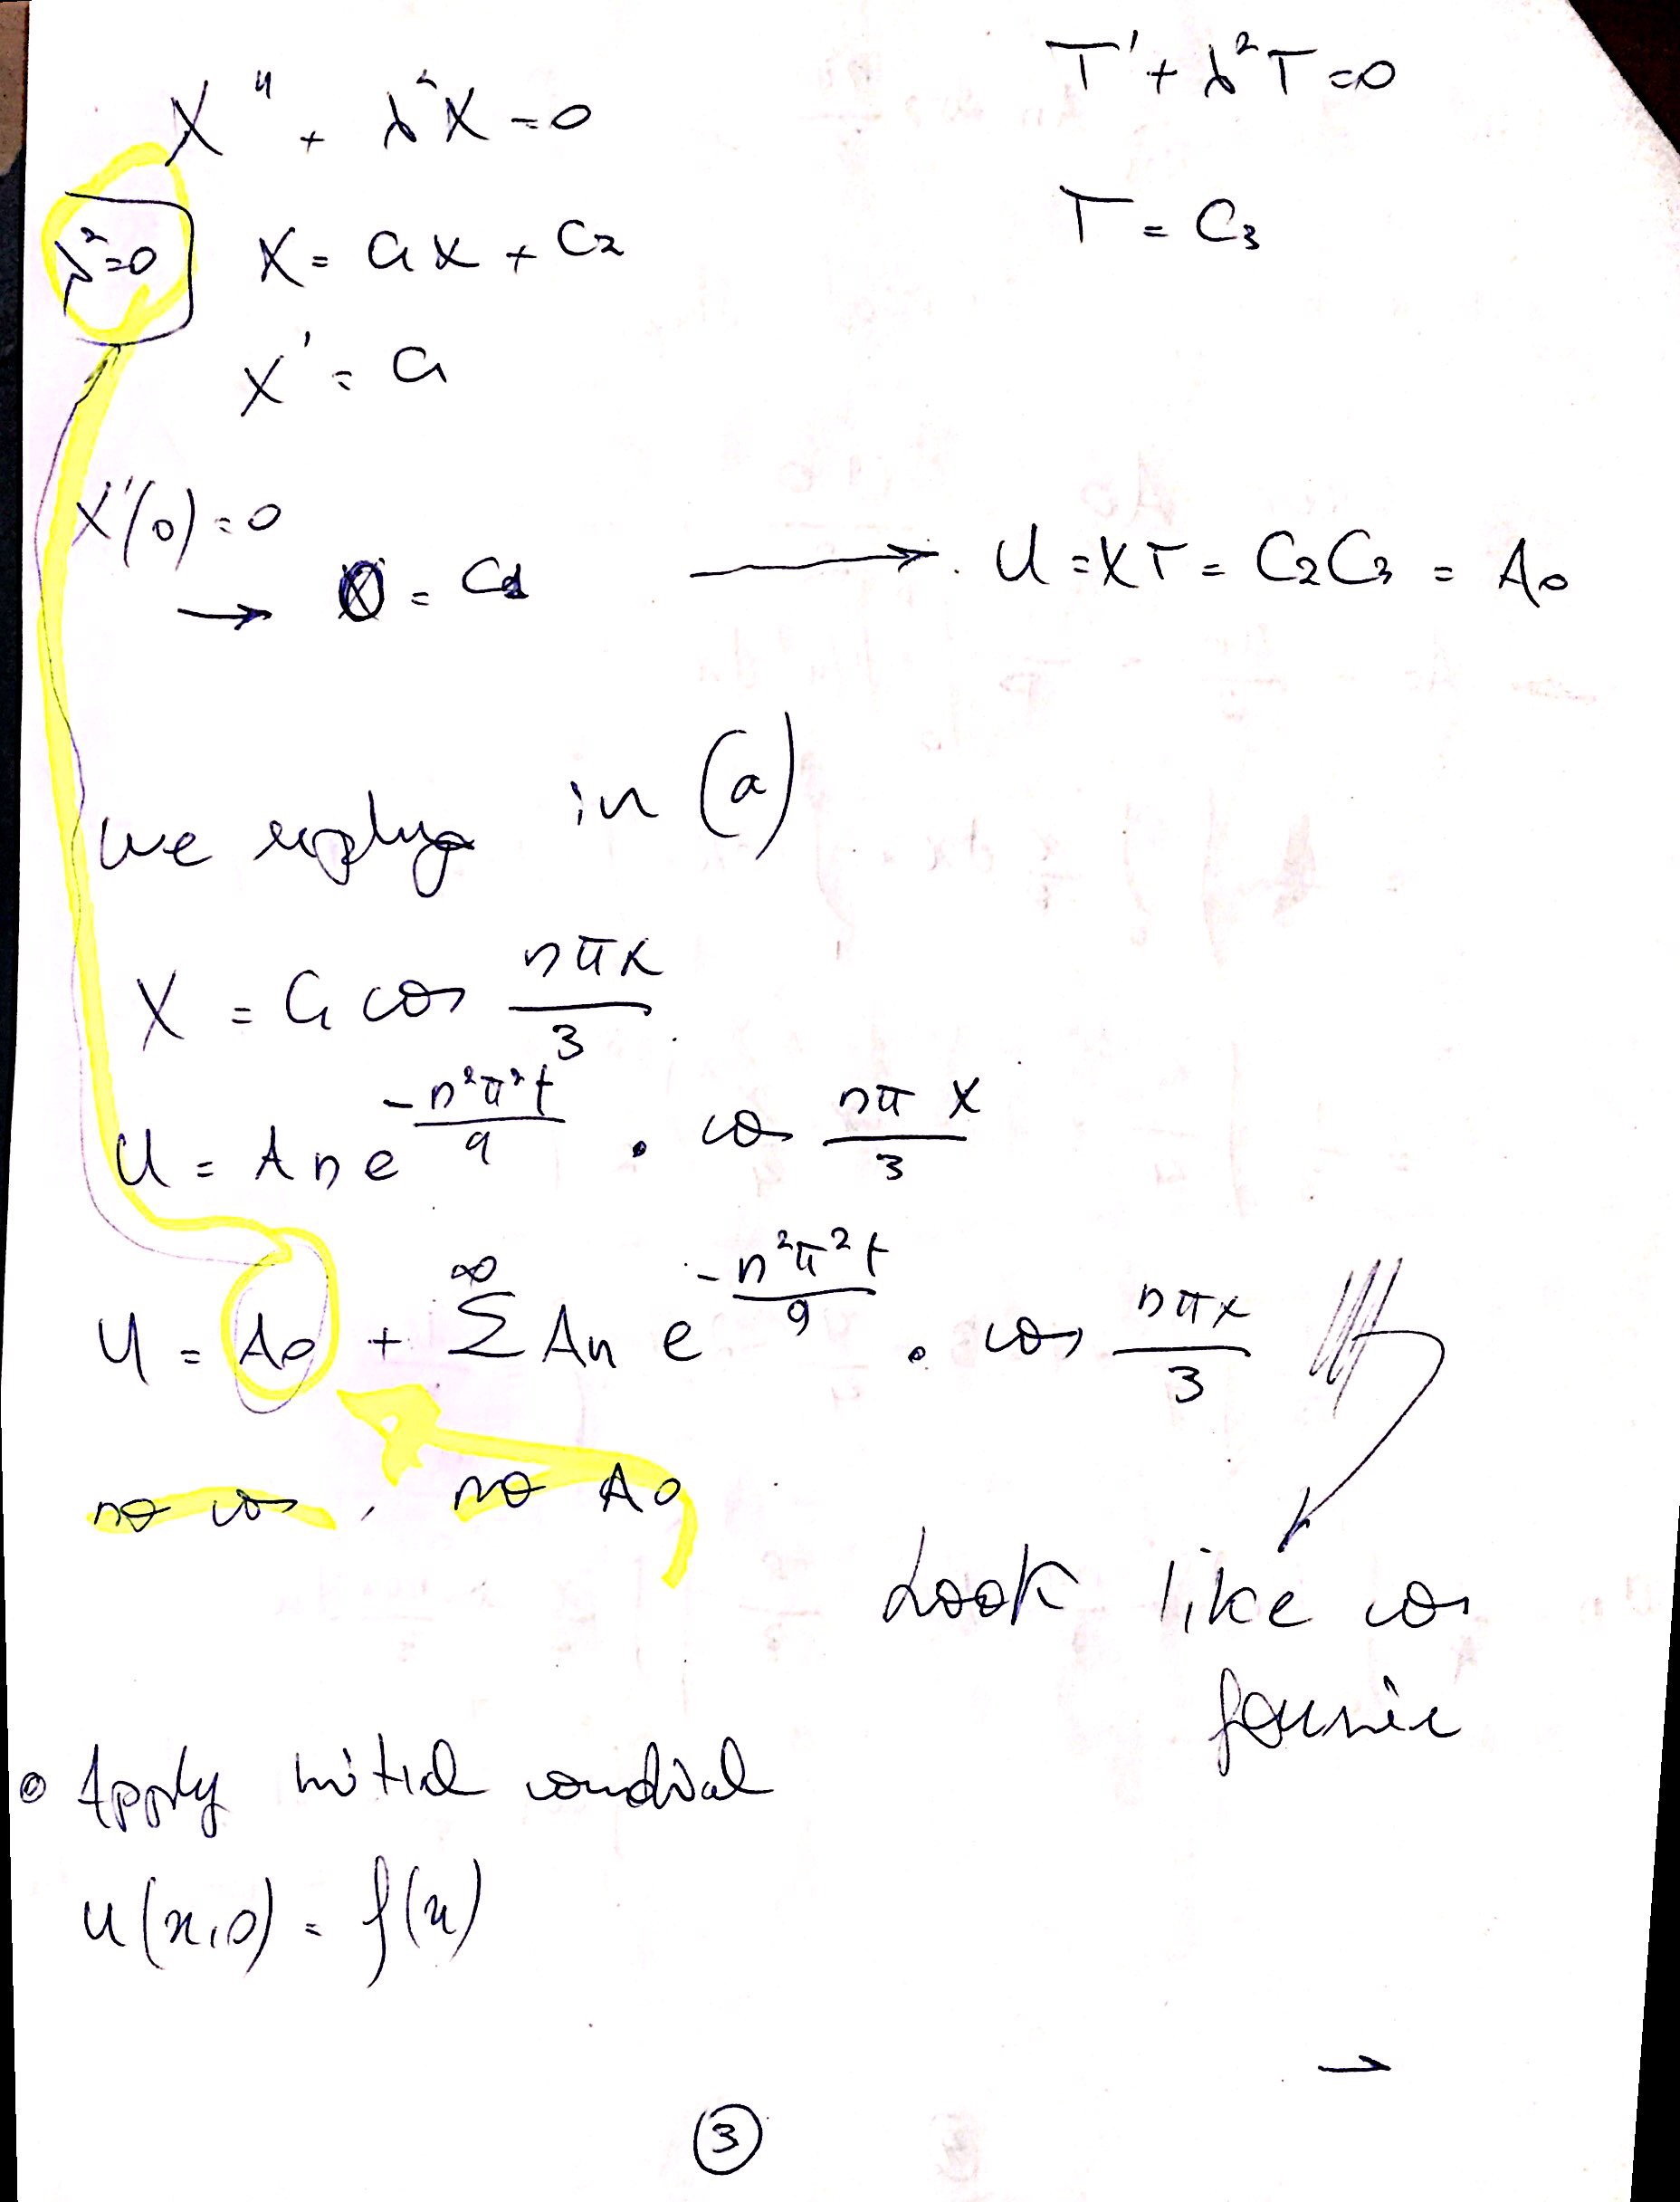 X'' + λ²X = 0
T' + λ²T = 0
λ² = 0
X = C₁x + C₂
T = C₃
X' = C₁
X'(0) = 0
→ 0 = C₁ → U = XT = C₂C₃ = A₀
we in (a)
X = C₁ cos nπx/3
U = An e^(-n²π²t/9) . cos nπx/3
U = A₀ + ∞ Σ An e^(-n²π²t/9) . cos nπx/3
no cos, no A₀
Look like cos
fourier
Apply initial
u(x,0) = f(x)
→
3